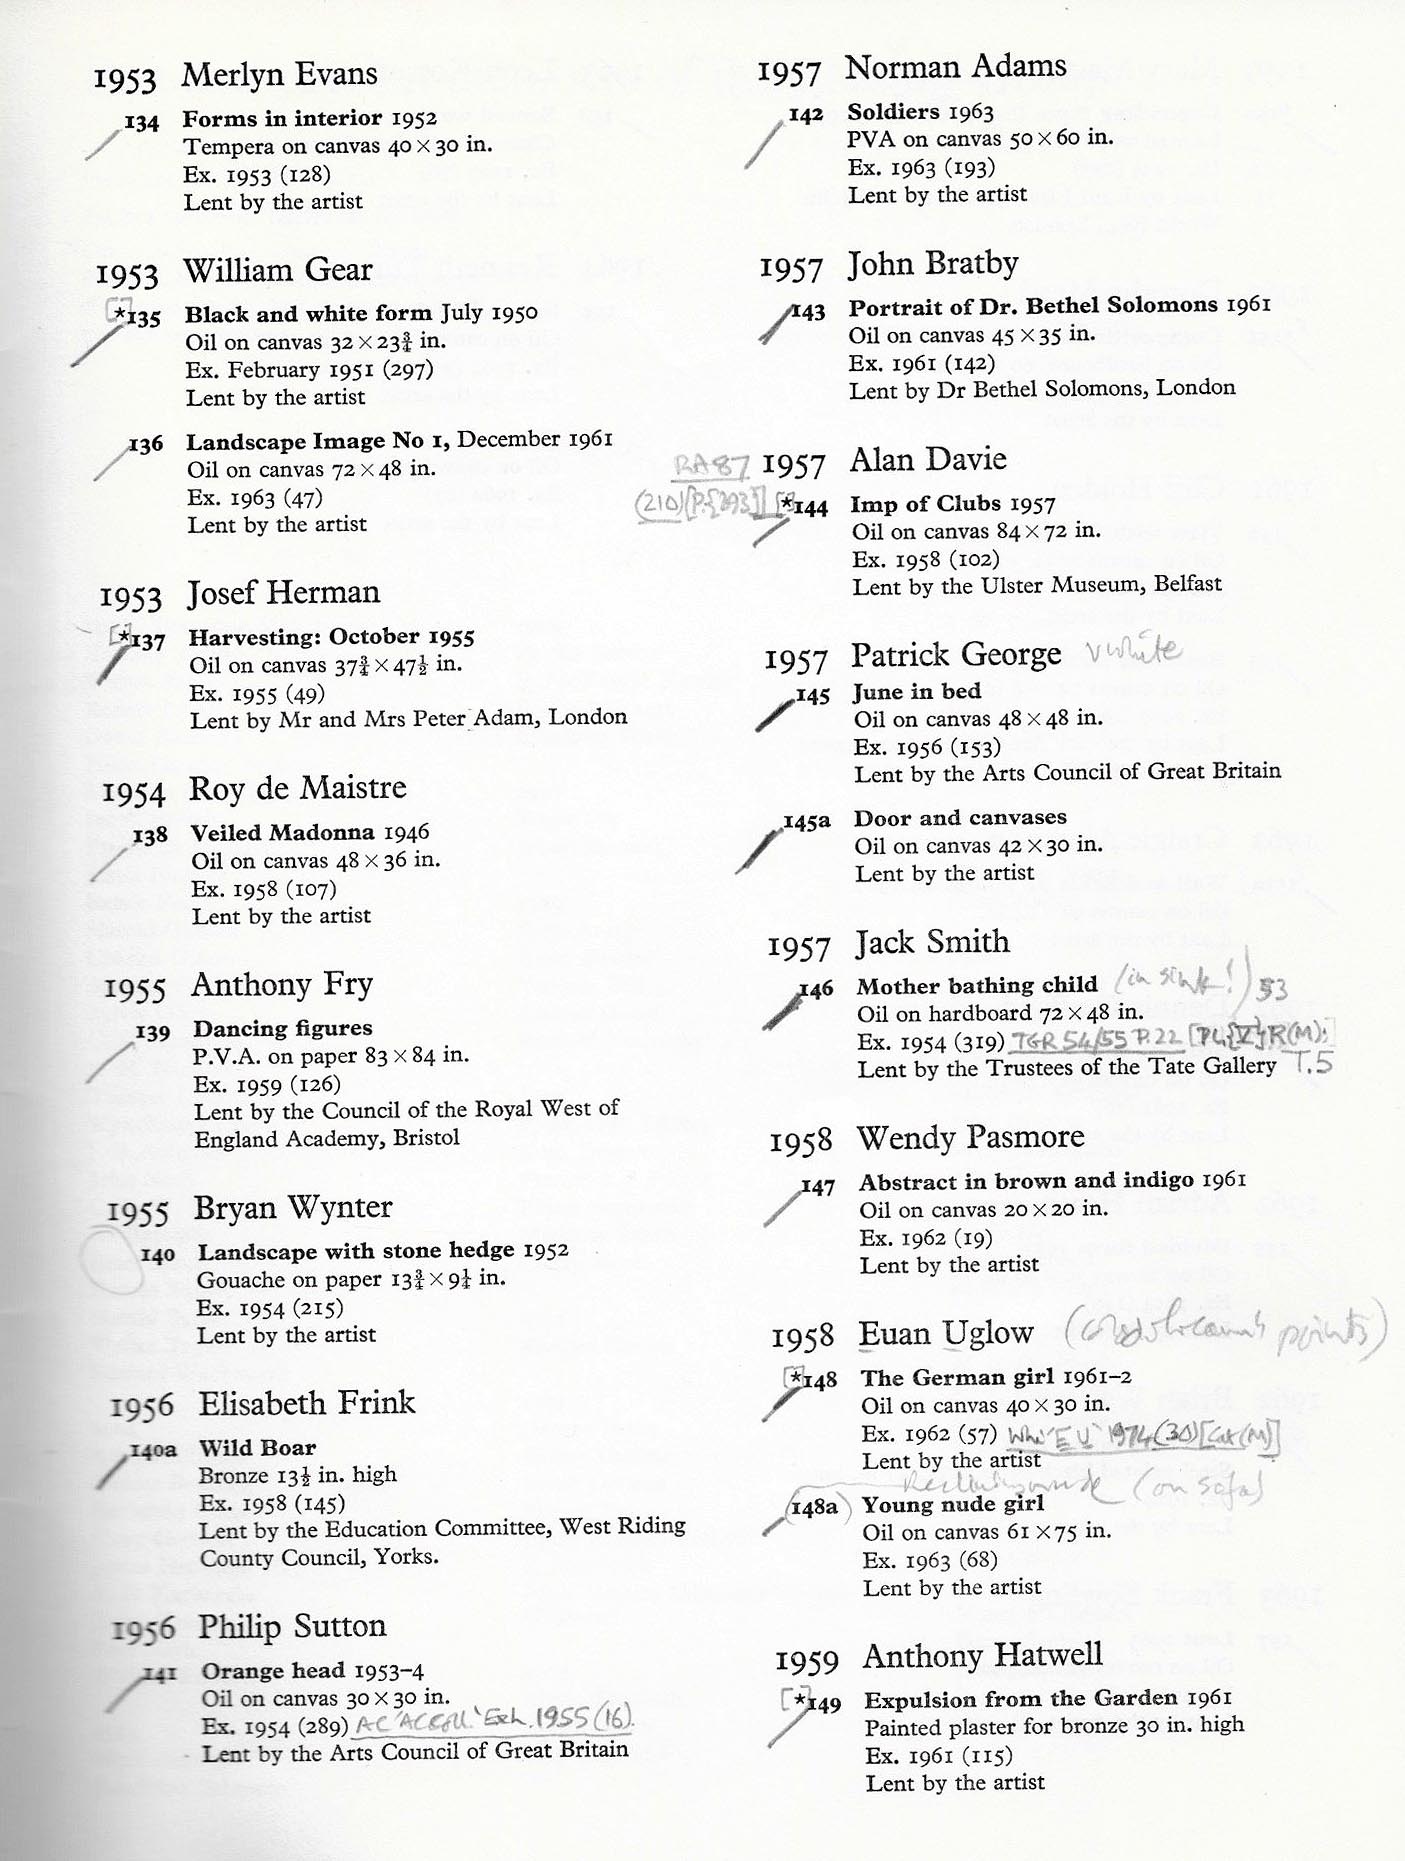 1953 Merlyn Evans
134 Forms in interior 1952
Tempera on canvas 40 × 30 in.
Ex. 1953 (128)
Lent by the artist
1953 William Gear
[*]135 Black and white form July 1950
Oil on canvas 32 × 23¾ in.
Ex. February 1951 (297)
Lent by the artist
136 Landscape Image No 1, December 1961
Oil on canvas 72 × 48 in.
Ex. 1963 (47)
Lent by the artist
1953 Josef Herman
[*]137 Harvesting: October 1955
Oil on canvas 37¾ × 47½ in.
Ex. 1955 (49)
Lent by Mr and Mrs Peter Adam, London
1954 Roy de Maistre
138 Veiled Madonna 1946
Oil on canvas 48 × 36 in.
Ex. 1958 (107)
Lent by the artist
1955 Anthony Fry
139 Dancing figures
P.V.A. on paper 83 × 84 in.
Ex. 1959 (126)
Lent by the Council of the Royal West of
England Academy, Bristol
1955 Bryan Wynter
140 Landscape with stone hedge 1952
Gouache on paper 13¾ × 9¼ in.
Ex. 1954 (215)
Lent by the artist
1956 Elisabeth Frink
140a Wild Boar
Bronze 13½ in. high
Ex. 1958 (145)
Lent by the Education Committee, West Riding
County Council, Yorks.
1956 Philip Sutton
141 Orange head 1953–4
Oil on canvas 30 × 30 in.
Ex. 1954 (289) AC Exh. 1955 (16).
Lent by the Arts Council of Great Britain
1957 Norman Adams
142 Soldiers 1963
PVA on canvas 50 × 60 in.
Ex. 1963 (193)
Lent by the artist
1957 John Bratby
143 Portrait of Dr. Bethel Solomons 1961
Oil on canvas 45 × 35 in.
Ex. 1961 (142)
Lent by Dr Bethel Solomons, London
RA87 1957 Alan Davie
(210) [P.{293}] [*]144 Imp of Clubs 1957
Oil on canvas 84 × 72 in.
Ex. 1958 (102)
Lent by the Ulster Museum, Belfast
1957 Patrick George v white
145 June in bed
Oil on canvas 48 × 48 in.
Ex. 1956 (153)
Lent by the Arts Council of Great Britain
145a Door and canvases
Oil on canvas 42 × 30 in.
Lent by the artist
1957 Jack Smith
146 Mother bathing child (in sink!) 53
Oil on hardboard 72 × 48 in.
Ex. 1954 (319) TGR 54/55 P.22
Lent by the Trustees of the Tate Gallery T.5
1958 Wendy Pasmore
147 Abstract in brown and indigo 1961
Oil on canvas 20 × 20 in.
Ex. 1962 (19)
Lent by the artist
1958 Euan Uglow points)
[*]148 The German girl 1961–2
Oil on canvas 40 × 30 in.
Ex. 1962 (57) 'EU' 1974 (30) [Cat (M)]
Lent by the artist
Reclining nude (on sofa)
(148a) Young nude girl
Oil on canvas 61 × 75 in.
Ex. 1963 (68)
Lent by the artist
1959 Anthony Hatwell
[*]149 Expulsion from the Garden 1961
Painted plaster for bronze 30 in. high
Ex. 1961 (115)
Lent by the artist